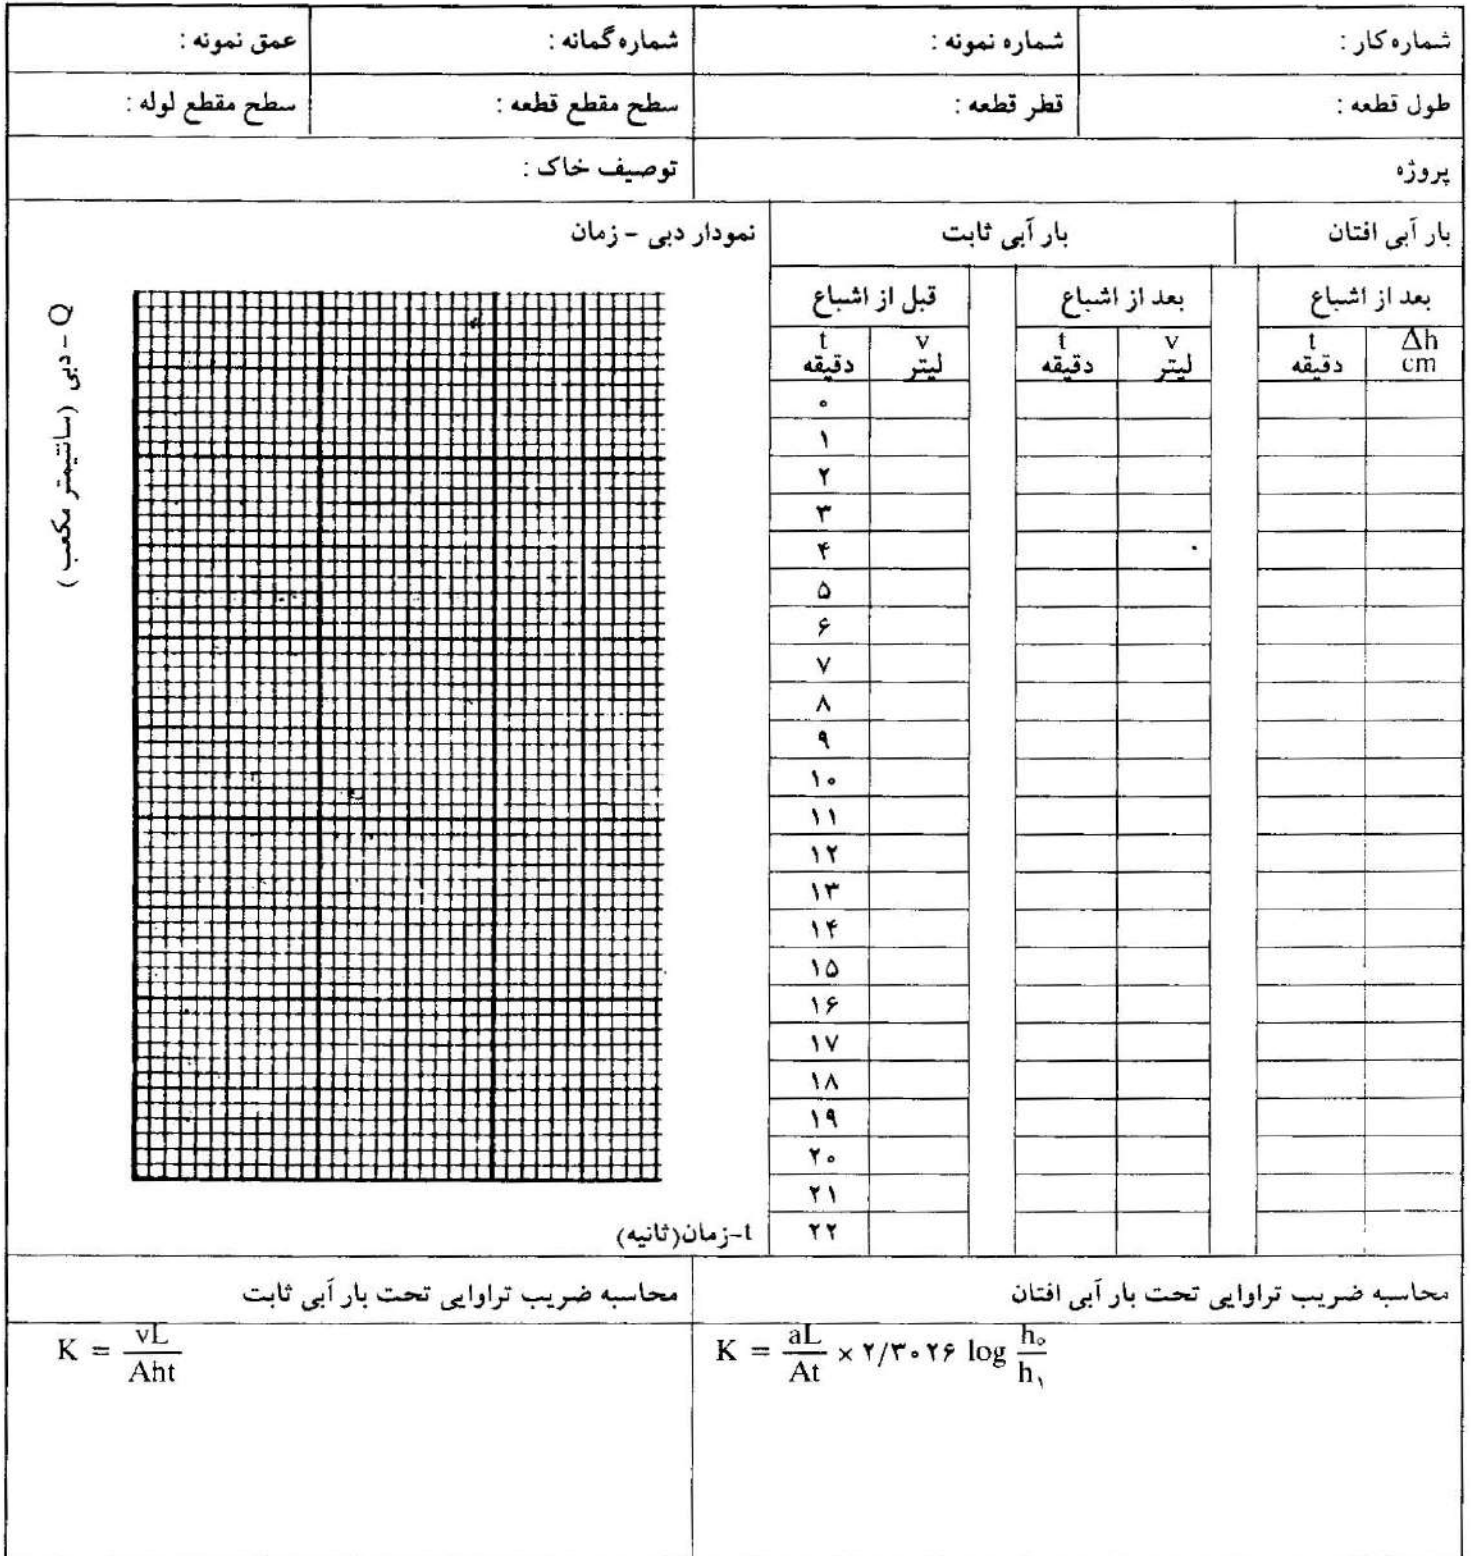 شماره کار : شماره نمونه : شماره گمانه : عمق نمونه :
طول قطعه : قطر قطعه : سطح مقطع قطعه : سطح مقطع لوله :
پروژه توصیف خاک :
بار آبی افتان بار آبی ثابت نمودار دبی - زمان
بعد از اشباع بعد از اشباع قبل از اشباع
Δh t v t v t
cm دقیقه لیتر دقیقه لیتر دقیقه
۰
۱
۲
۳
۴
۵
۶
۷
۸
۹
۱۰
۱۱
۱۲
۱۳
۱۴
۱۵
۱۶
۱۷
۱۸
۱۹
۲۰
۲۱
۲۲
Q - دبی (سانتیمتر مکعب)
t-زمان(ثانیه)
محاسبه ضریب تراوایی تحت بار آبی افتان محاسبه ضریب تراوایی تحت بار آبی ثابت
K = aL/At × ۲/۳۰۲۶ log h₀/h₁
K = vL/Aht